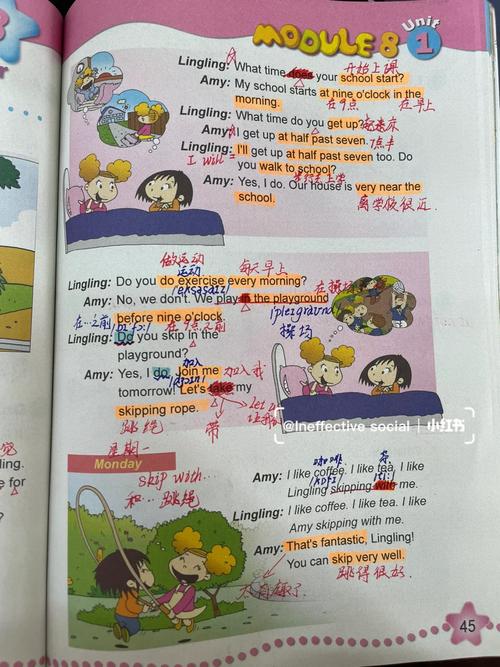 MODULE 8 Unit 1
Lingling: What time does your school start?
开始上课
Amy: My school starts at nine o'clock in the
morning.
在9点
在早上
Lingling: What time do you get up?
起床
Amy: I get up at half past seven.
7点半
Lingling: I'll get up at half past seven too. Do
I will =
you walk to school?
Amy: Yes, I do. Our house is very near the
school.
离学校很近.
做运动
运动
每天早上
Lingling: Do you do exercise every morning?
Amy: No, we don't. We play in the playground
在操场
before nine o'clock.
在…之前
在9点之前
操场
Lingling: Do you skip in the
playground?
加入
Amy: Yes, I do. Join me
加入我
tomorrow! Let's take my
skipping rope.
跳绳
带
@Ineffective social | 小红书
星期一
Monday
skip with...
和… 跳绳
咖啡
茶
Amy: I like coffee. I like tea. I like
Lingling skipping with me.
Lingling: I like coffee. I like tea. I like
Amy skipping with me.
Amy: That's fantastic, Lingling!
You can skip very well.
太有趣了
跳得很好.
45